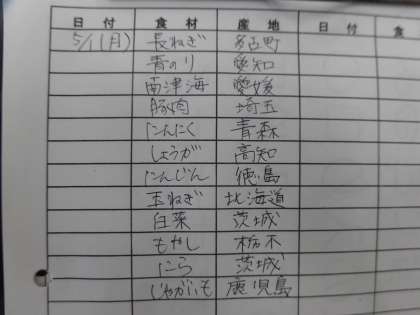 日付 食材 産地 日付 食
5/1(月) 長ねぎ 多古町
青のり 愛知
南津海 愛媛
豚肉 埼玉
にんにく 青森
しょうが 高知
にんじん 徳島
玉ねぎ 北海道
白菜 茨城
もやし 栃木
にら 茨城
じゃがいも 鹿児島